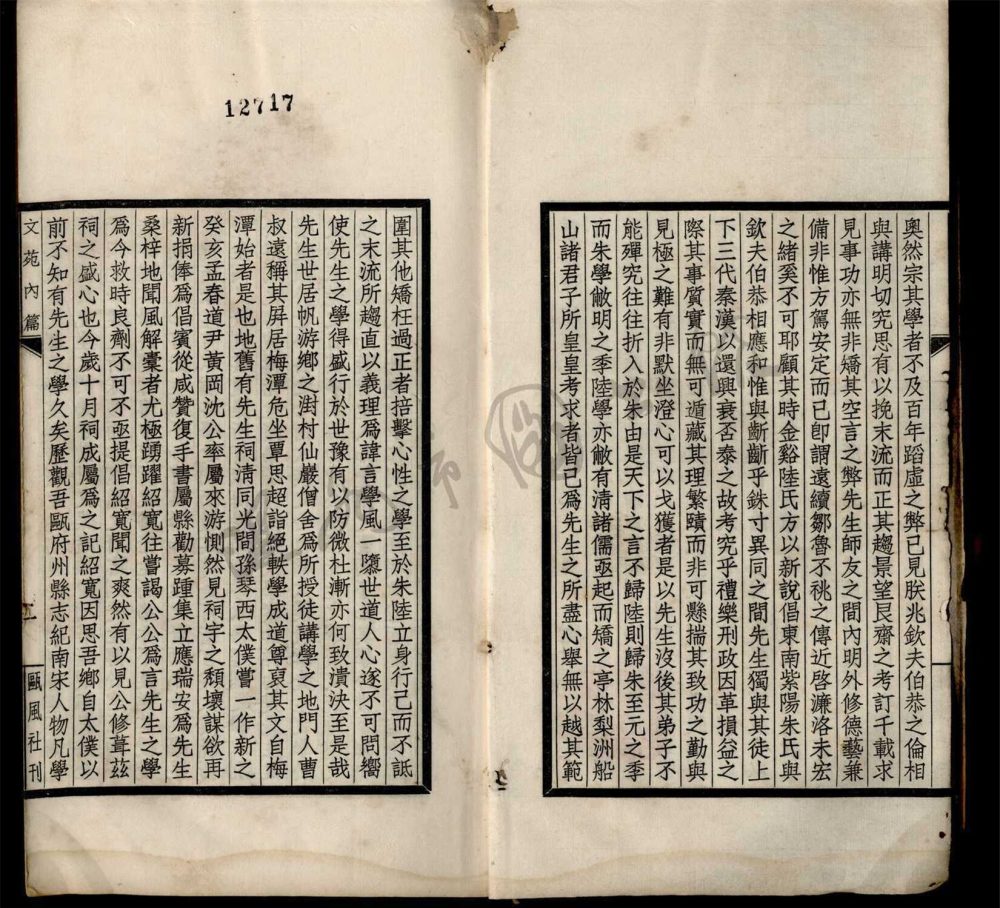 12717
奧然宗其學者不及百年蹈虛之弊已見朕兆欽夫伯恭之倫相
與講明切究思有以挽末流而正其趨景望艮齋之考訂千載求
見事功亦無非矯其空言之弊先生師友之間內明外修德藝兼
備非惟方駕安定而已卽謂遠續鄒魯不祧之傳近啓濂洛未宏
之緒奚不可耶顧其時金谿陸氏方以新說倡東南紫陽朱氏與
欽夫伯恭相應和惟與齗齗乎銖寸異同之間先生獨與其徒上
下三代秦漢以還興衰否泰之故考究乎禮樂刑政因革損益之
際其事質實而無可遁藏其理繁賾而非可懸揣其致功之勤與
見極之難有非默坐澄心可以弋獲者是以先生沒後其弟子不
能殫究往往折入於朱由是天下之言不歸陸則歸朱至元之季
而朱學敝明之季陸學亦敝有清諸儒亟起而矯之亭林梨洲船
山諸君子所皇皇考求者皆已爲先生之所盡心舉無以越其範
圍其他矯枉過正者掊擊心性之學至於朱陸立身行己而不詆
之末流所趨直以義理爲諱言學風一隳世道人心遂不可問嚮
使先生之學得盛行於世豫有以防微杜漸亦何致潰決至是哉
先生世居帆游鄉之澍村仙巖僧舍爲所授徒講學之地門人曹
叔遠稱其屛居梅潭危坐覃思超詣絕軼學成道尊裒其文自梅
潭始者是也地舊有先生祠清同光間孫琴西太僕嘗一作新之
癸亥孟春道尹黃岡沈公率屬來游惻然見祠宇之頹壞謀欲再
新捐俸爲倡賓從咸贊復手書屬縣勸募踵集立應瑞安爲先生
桑梓地聞風解囊者尤極踴躍紹寬往嘗謁公公爲言先生之學
爲今救時良劑不可不亟提倡紹寬聞之爽然有以見公修葺茲
祠之盛心也今歲十月祠成屬爲之記紹寬因思吾鄉自太僕以
前不知有先生之學久矣歷觀吾甌府州縣志紀南宋人物凡學
文苑內篇
甌風社刊